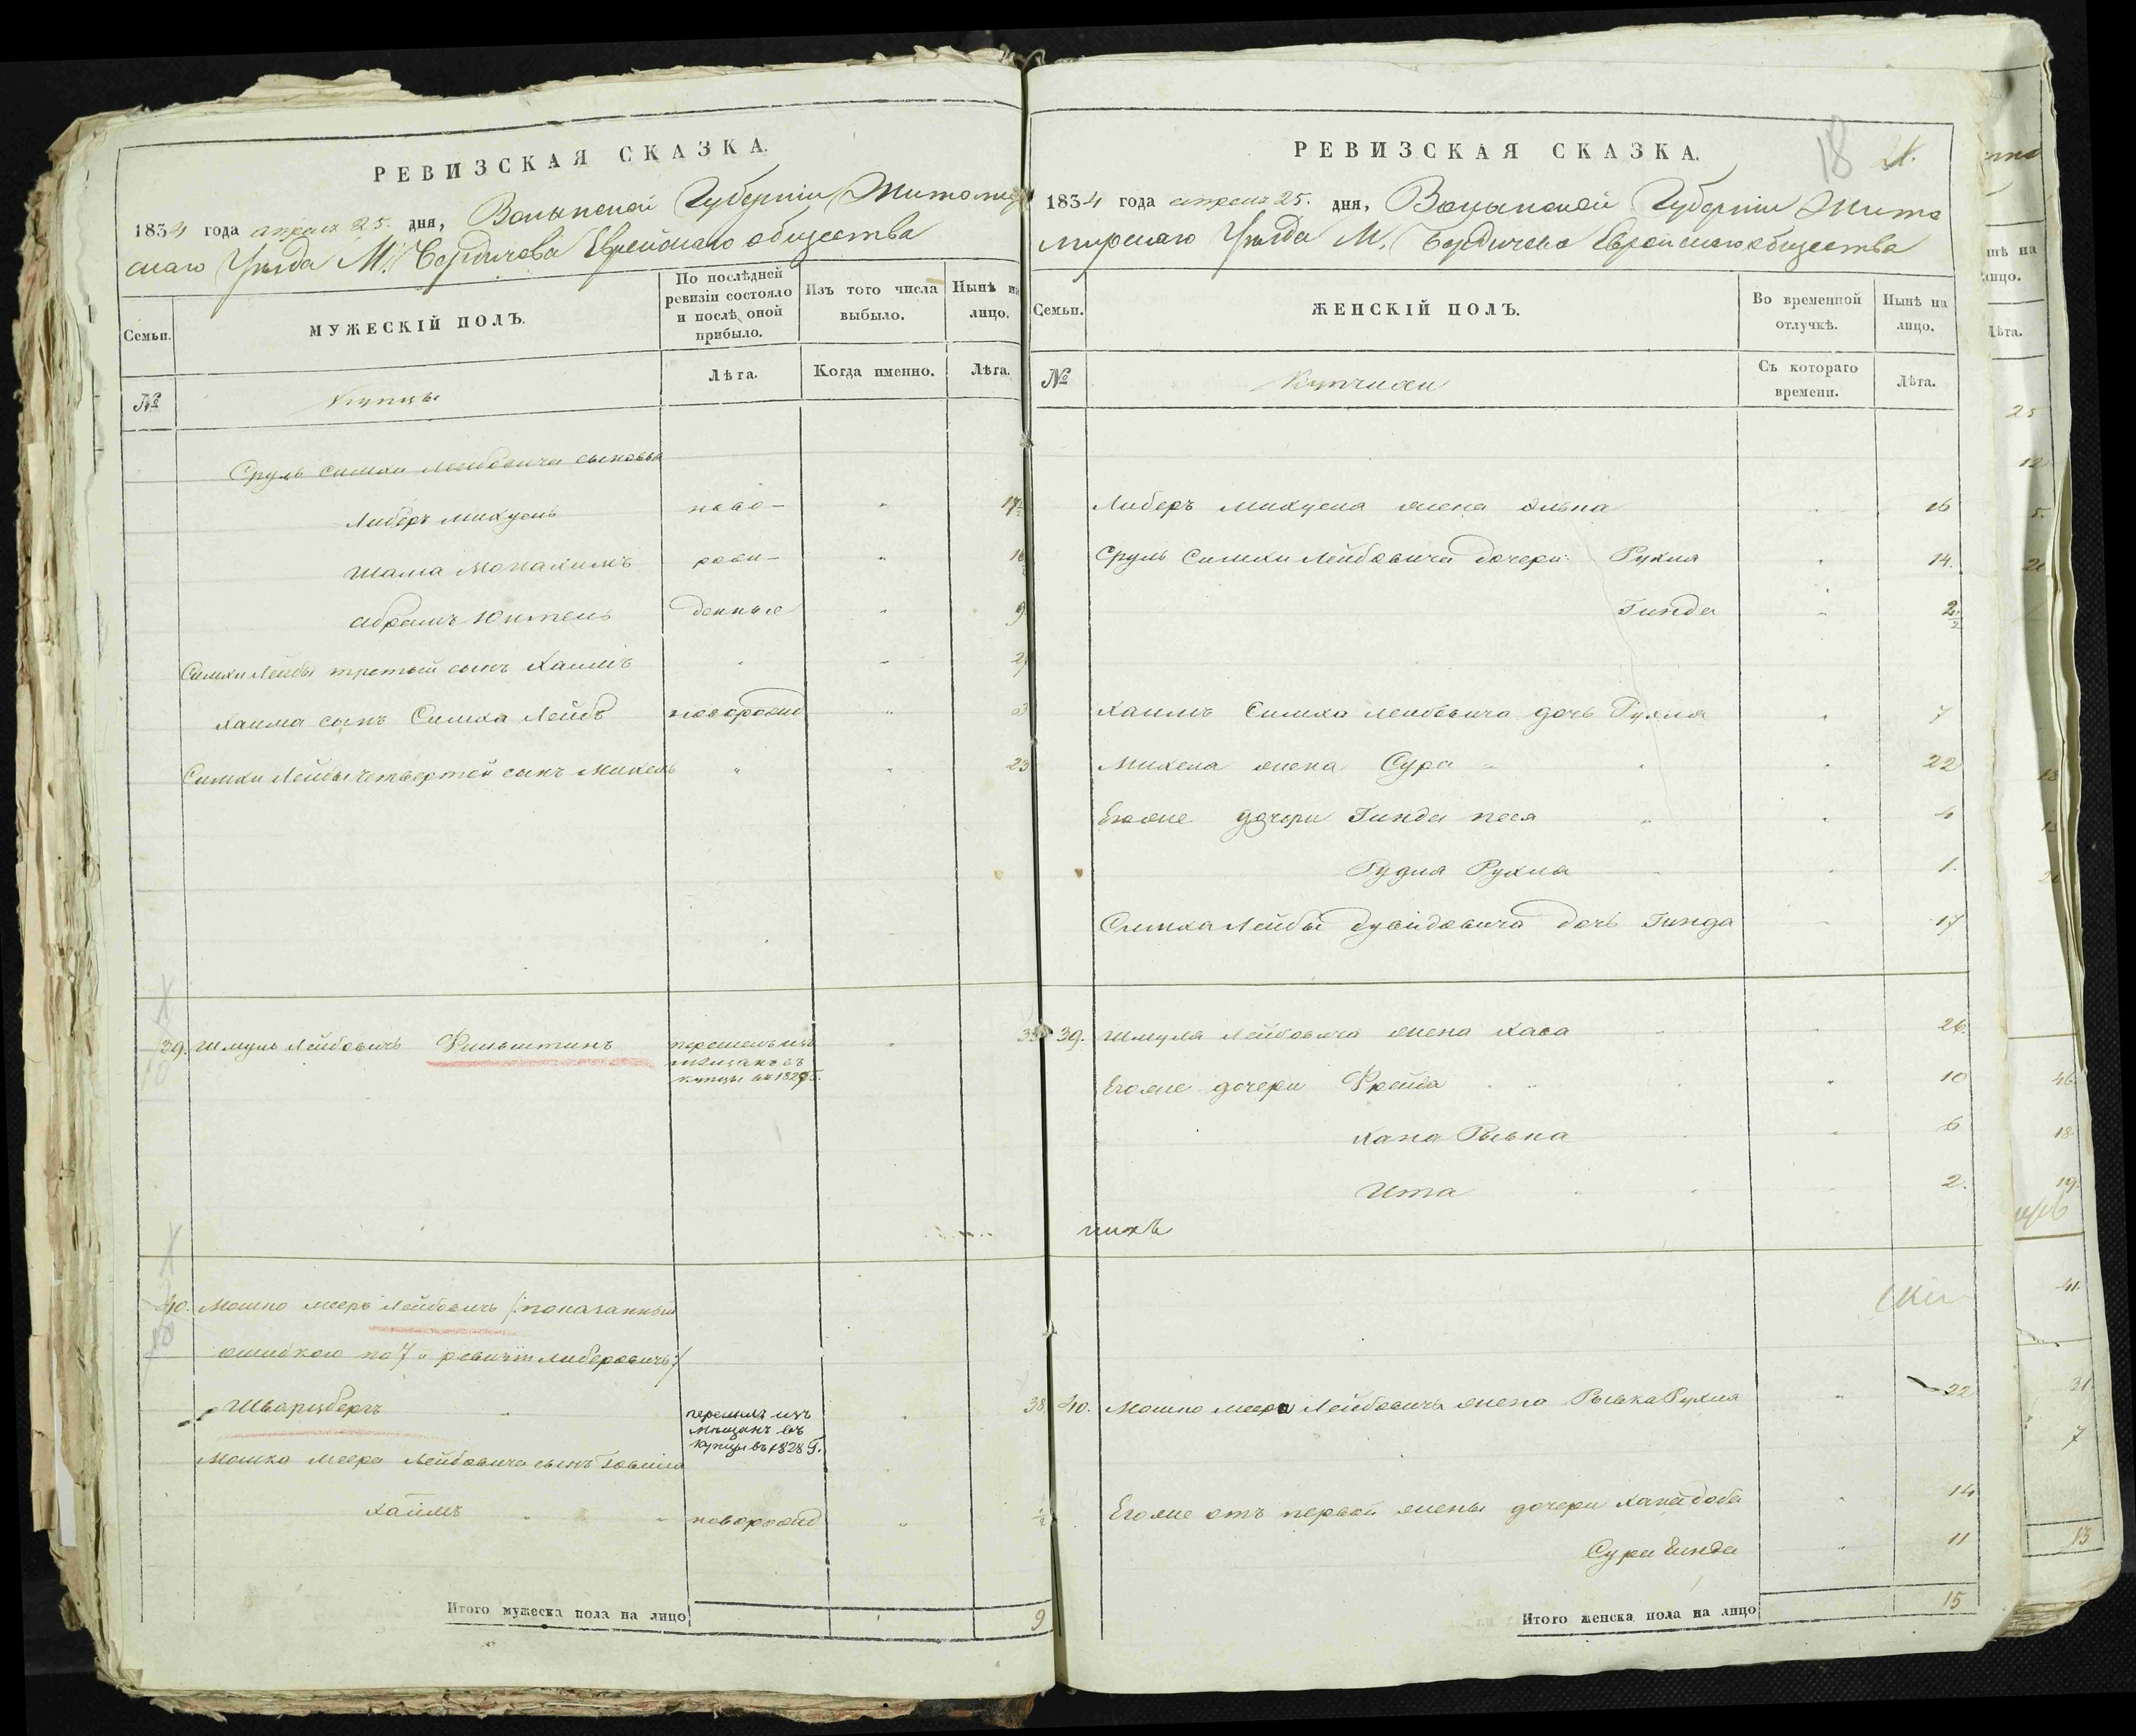 РЕВИЗСКАЯ СКАЗКА.
1834 года апреля 25. дня, Волынской Губерніи Житомир
скаго Уѣзда М. Бердичева Еврейскаго общества
Семьи.
МУЖЕСКІЙ ПОЛЪ.
По послѣдней ревизіи состояло и послѣ оной прибыло.
Изъ того числа выбыло.
Нынѣ на лицо.
№
Купцы
Лѣта.
Когда именно.
Лѣта.
Сруль Симхи Лейбовича сыновья
Либеръ Михуель ново- 17½
Шама Монахимъ рожи- 16
Абрамъ Юнтель денные 9
Симхи Лейбы третый сынъ Хаимъ 27
Хаима сынъ Симха Лейбъ новорожд 3
Симхи Лейбы четвертой сынъ Михель 23
39. Шмуль Лейбовичъ Фильштинъ перешелъ изъ мещанъ въ купцы въ 1829 Г. 35
40. Мошко Мееръ Лейбовичъ /:показанный
ошибкою по 7й ревизіи Либеровичъ:/
Шварцбергъ перешелъ изъ мѣщанъ въ купцы въ 1828 Г. 38
Мошка Меера Лейбовича сынъ
Хаимъ новорожд ½
Итого мужеска пола на лицо 9
РЕВИЗСКАЯ СКАЗКА.
18 21.
1834 года апреля 25. дня, Волынской Губерніи Жито
мирскаго Уѣзда М. Бердичева Еврейскаго общества
Семьи.
ЖЕНСКІЙ ПОЛЪ.
Во временной отлучкѣ.
Нынѣ на лицо.
№
Купчихи
Съ котораго времени.
Лѣта.
Либеръ Михуеля жена Эльна 16
Сруль Симхи Лейбовича дочери: Рухля 14.
Гинда 2½
Хаимъ Симха Лейбовича дочь Рухля 7
Михеля жена Сура 22
Егоже дочери Гинда Песя 4
Рудля Рухля 1.
Симха Лейбы Дувидовича дочь Гинда 17
39. Шмуля Лейбовича жена Хава 26.
Егоже дочери Фрейда 10
Хана Рывка 6
Ита 2.
нихъ
40. Мошко Меера Лейбовича жена Рывка Рухля 22
Егоже отъ первой жены дочери Хана Доба 14
Сура Гинда 11
Итого женска пола на лицо 15